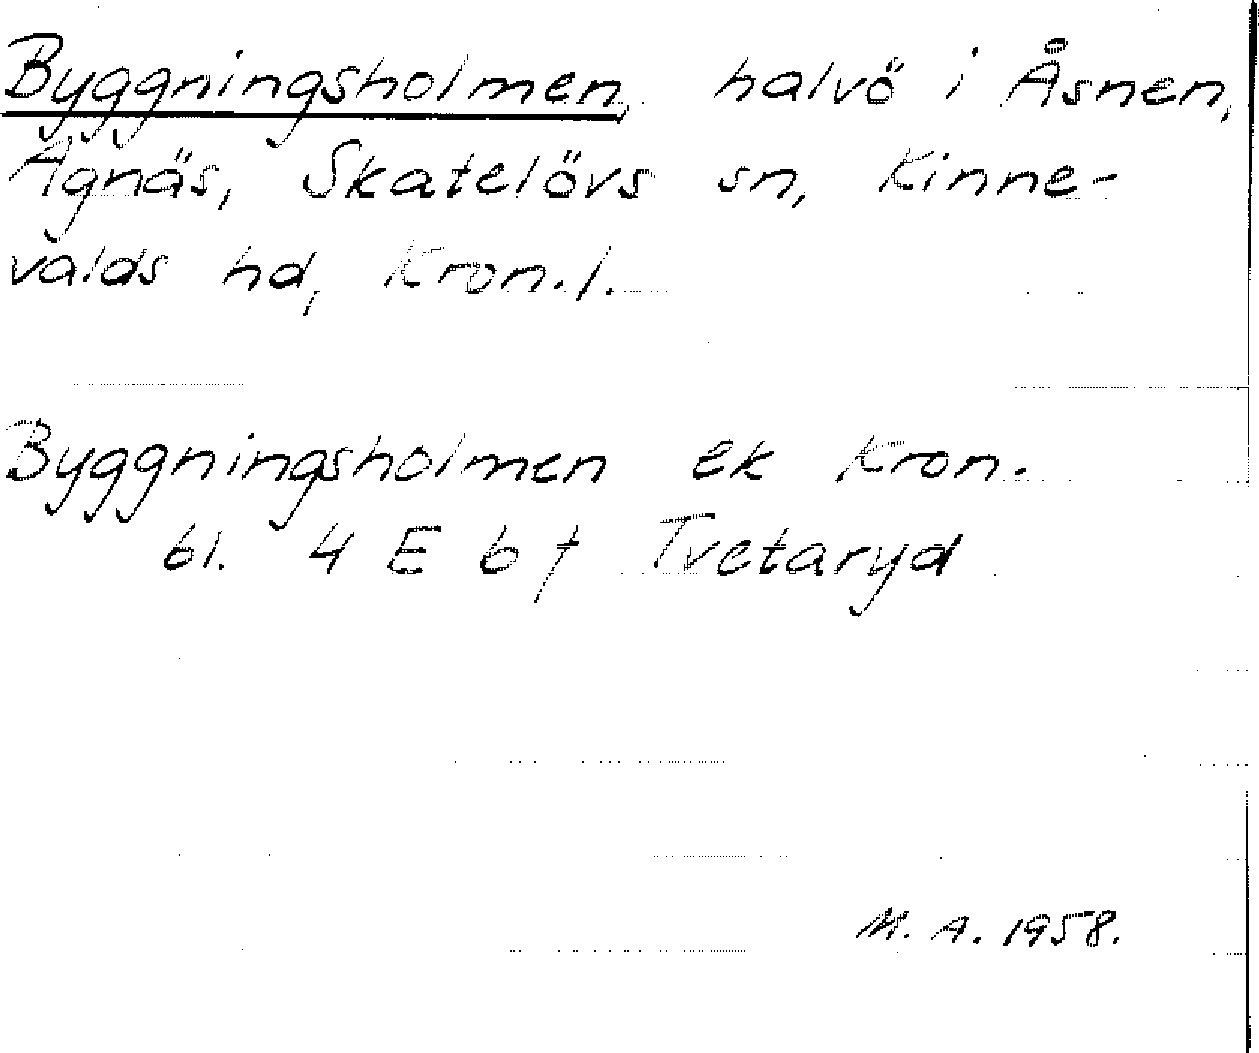 Byggningsholmen, halvö i Åsnen,
Agnäs, Skatelövs sn, Kinne-
valds hd, Kron.l.
Byggningsholmen ek Kron.
bl. 4 E b f Tvetaryd
M. A. 1958.